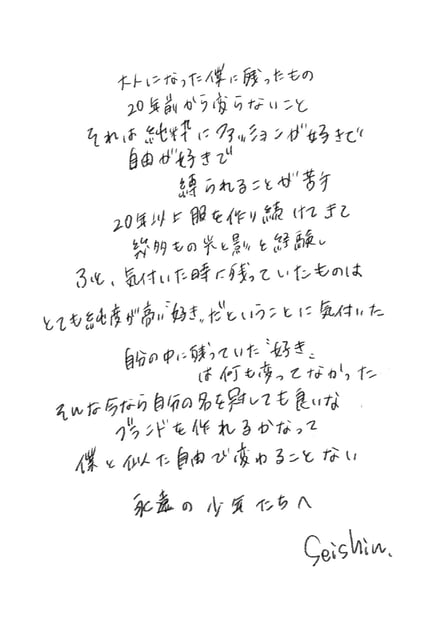 大人になった僕に残ったもの
20年前から変らないこと
それは純粋にファッションが好きで
自由が好きで
縛られることが苦手
20年以上服を作り続けてきて
幾多もの光と影と経験し
ふと、気付いた時に残っていたものは
とても純度が高い“好き”だということに気付いた
自分の中に残っていた“好き”
は何も変ってなかった
そんな今なら自分の名を冠しても良いな
ブランドを作れるかなって
僕と似た自由で変わることない
永遠の少年たちへ
Seishin.